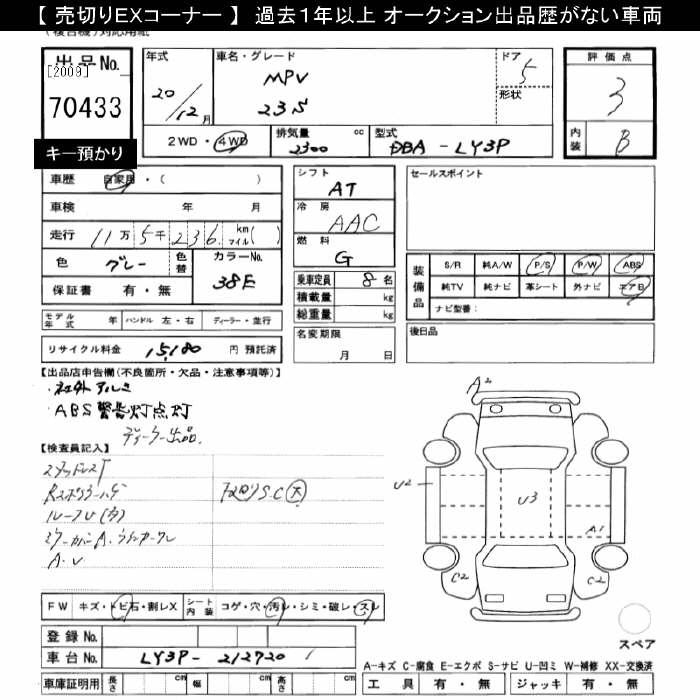 【 売切りEXコーナー 】 過去1年以上 オークション出品歴がない車両
出品No.
[2009]
70433
キー預かり
年式
20/12月
車名・グレード
MPV
23S
ドア
5
形状
評価点
3
内装
B
2WD・4WD
排気量
cc
2300
型式
DBA-LY3P
車歴
自家用・( )
車検 年 月
走行 11万5千236 km マイル( )
色 グレー
色替
カラーNo.
38E
保証書 有・無
モデル年式 年 ハンドル 左・右 ディーラー・並行
リサイクル料金 15,180 円 預託済
シフト
AT
冷房
AAC
燃料
G
乗車定員 8 名
積載量 kg
総重量 kg
名変期限
月 日
セールスポイント
装備品
S/R 純A/W P/S P/W ABS
純TV 純ナビ 革シート 外ナビ エアB
ナビ型番:
後日品
【出品店申告欄(不良箇所・欠品・注意事項等)】
・社外アルミ
・ABS警告灯点灯
ディーラー出品.
【検査員記入】
A.U
A2
U2
U3
A1
C2
C2
スペア
FW キズ・トビ石・割レX
シート内装 コゲ・穴・汚レ・シミ・破レ・スレ
登録No.
車台No. LY3P-212720
車庫証明用 長さ cm 幅 cm 高さ cm
A-キズ C-腐食 E-エクボ S-サビ U-凹ミ W-補修 XX-交換済
工具 有・無 ジャッキ 有・無